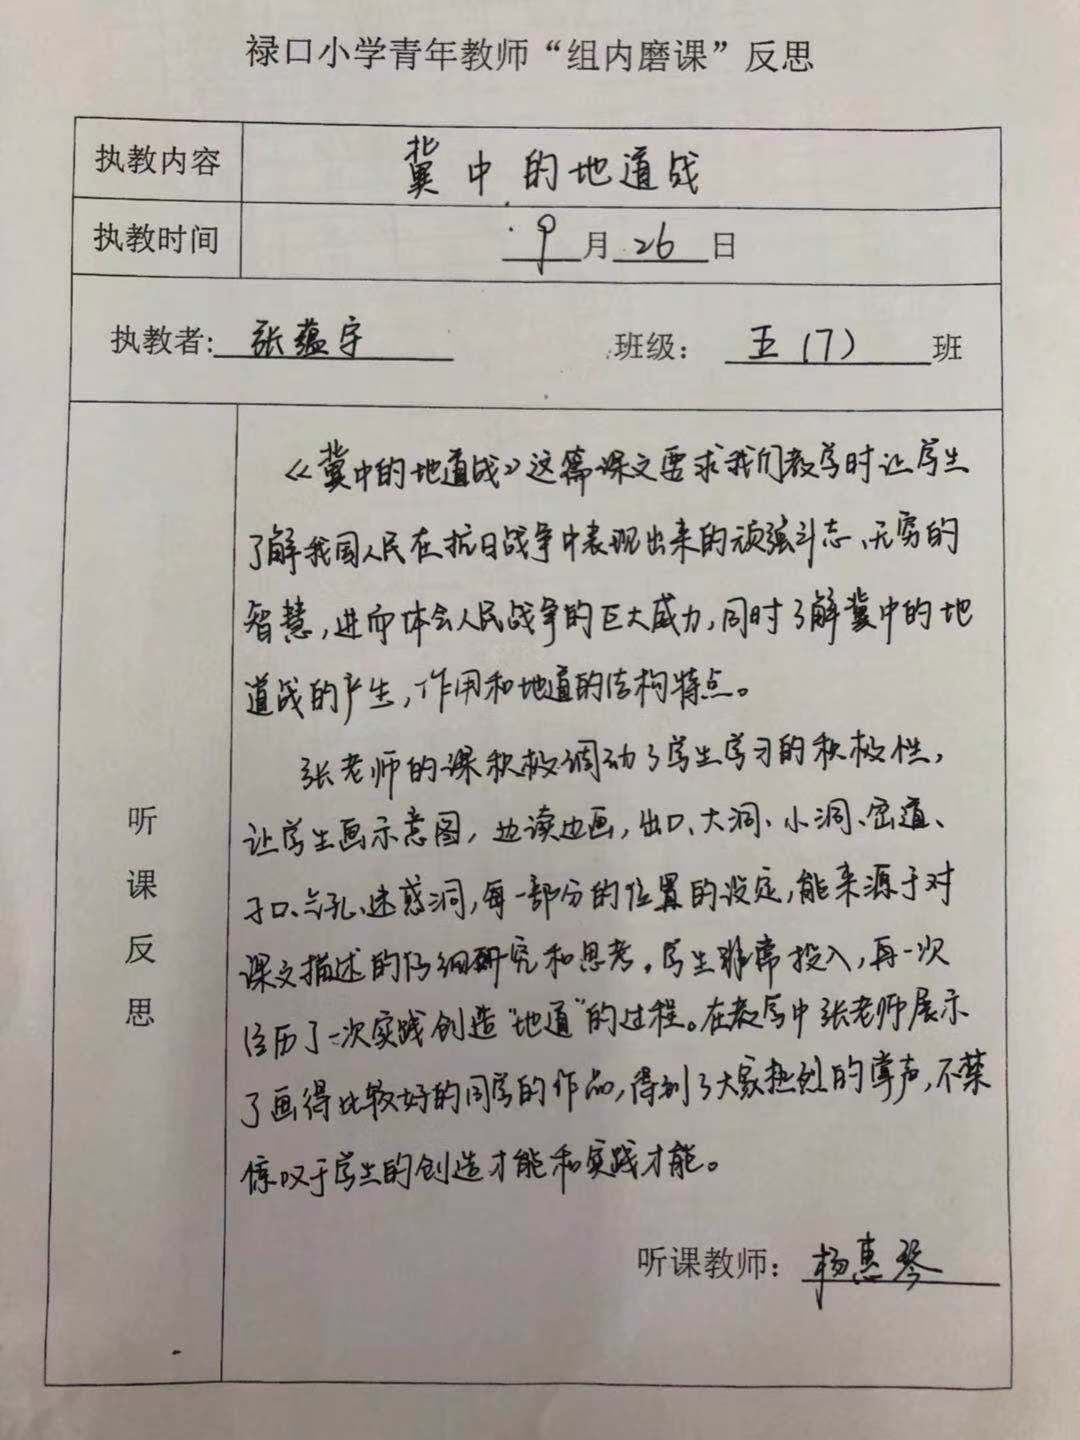 禄口小学青年教师“组内磨课”反思
执教内容 冀中的地道战
执教时间 9月26日
执教者：张蕴宇 班级：五（7）班
听课反思
《冀中的地道战》这篇课文要求我们教学时让学生
了解我国人民在抗日战争中表现出来的顽强斗志、无穷的
智慧，进而体会人民战争的巨大威力，同时了解冀中的地
道战的产生，作用和地道的结构特点。
张老师的课积极调动了学生学习的积极性，
让学生画示意图，边读边画，出口、大洞、小洞、密道、
子口、气孔、迷惑洞，每一部分的位置的设定，能来源于对
课文描述的仔细研究和思考。学生非常投入，再一次
经历了一次实践创造“地道”的过程。在教学中张老师展示
了画得比较好的同学的作品，得到了大家热烈的掌声，不禁
惊叹于学生的创造才能和实践才能。
听课教师：杨惠琴